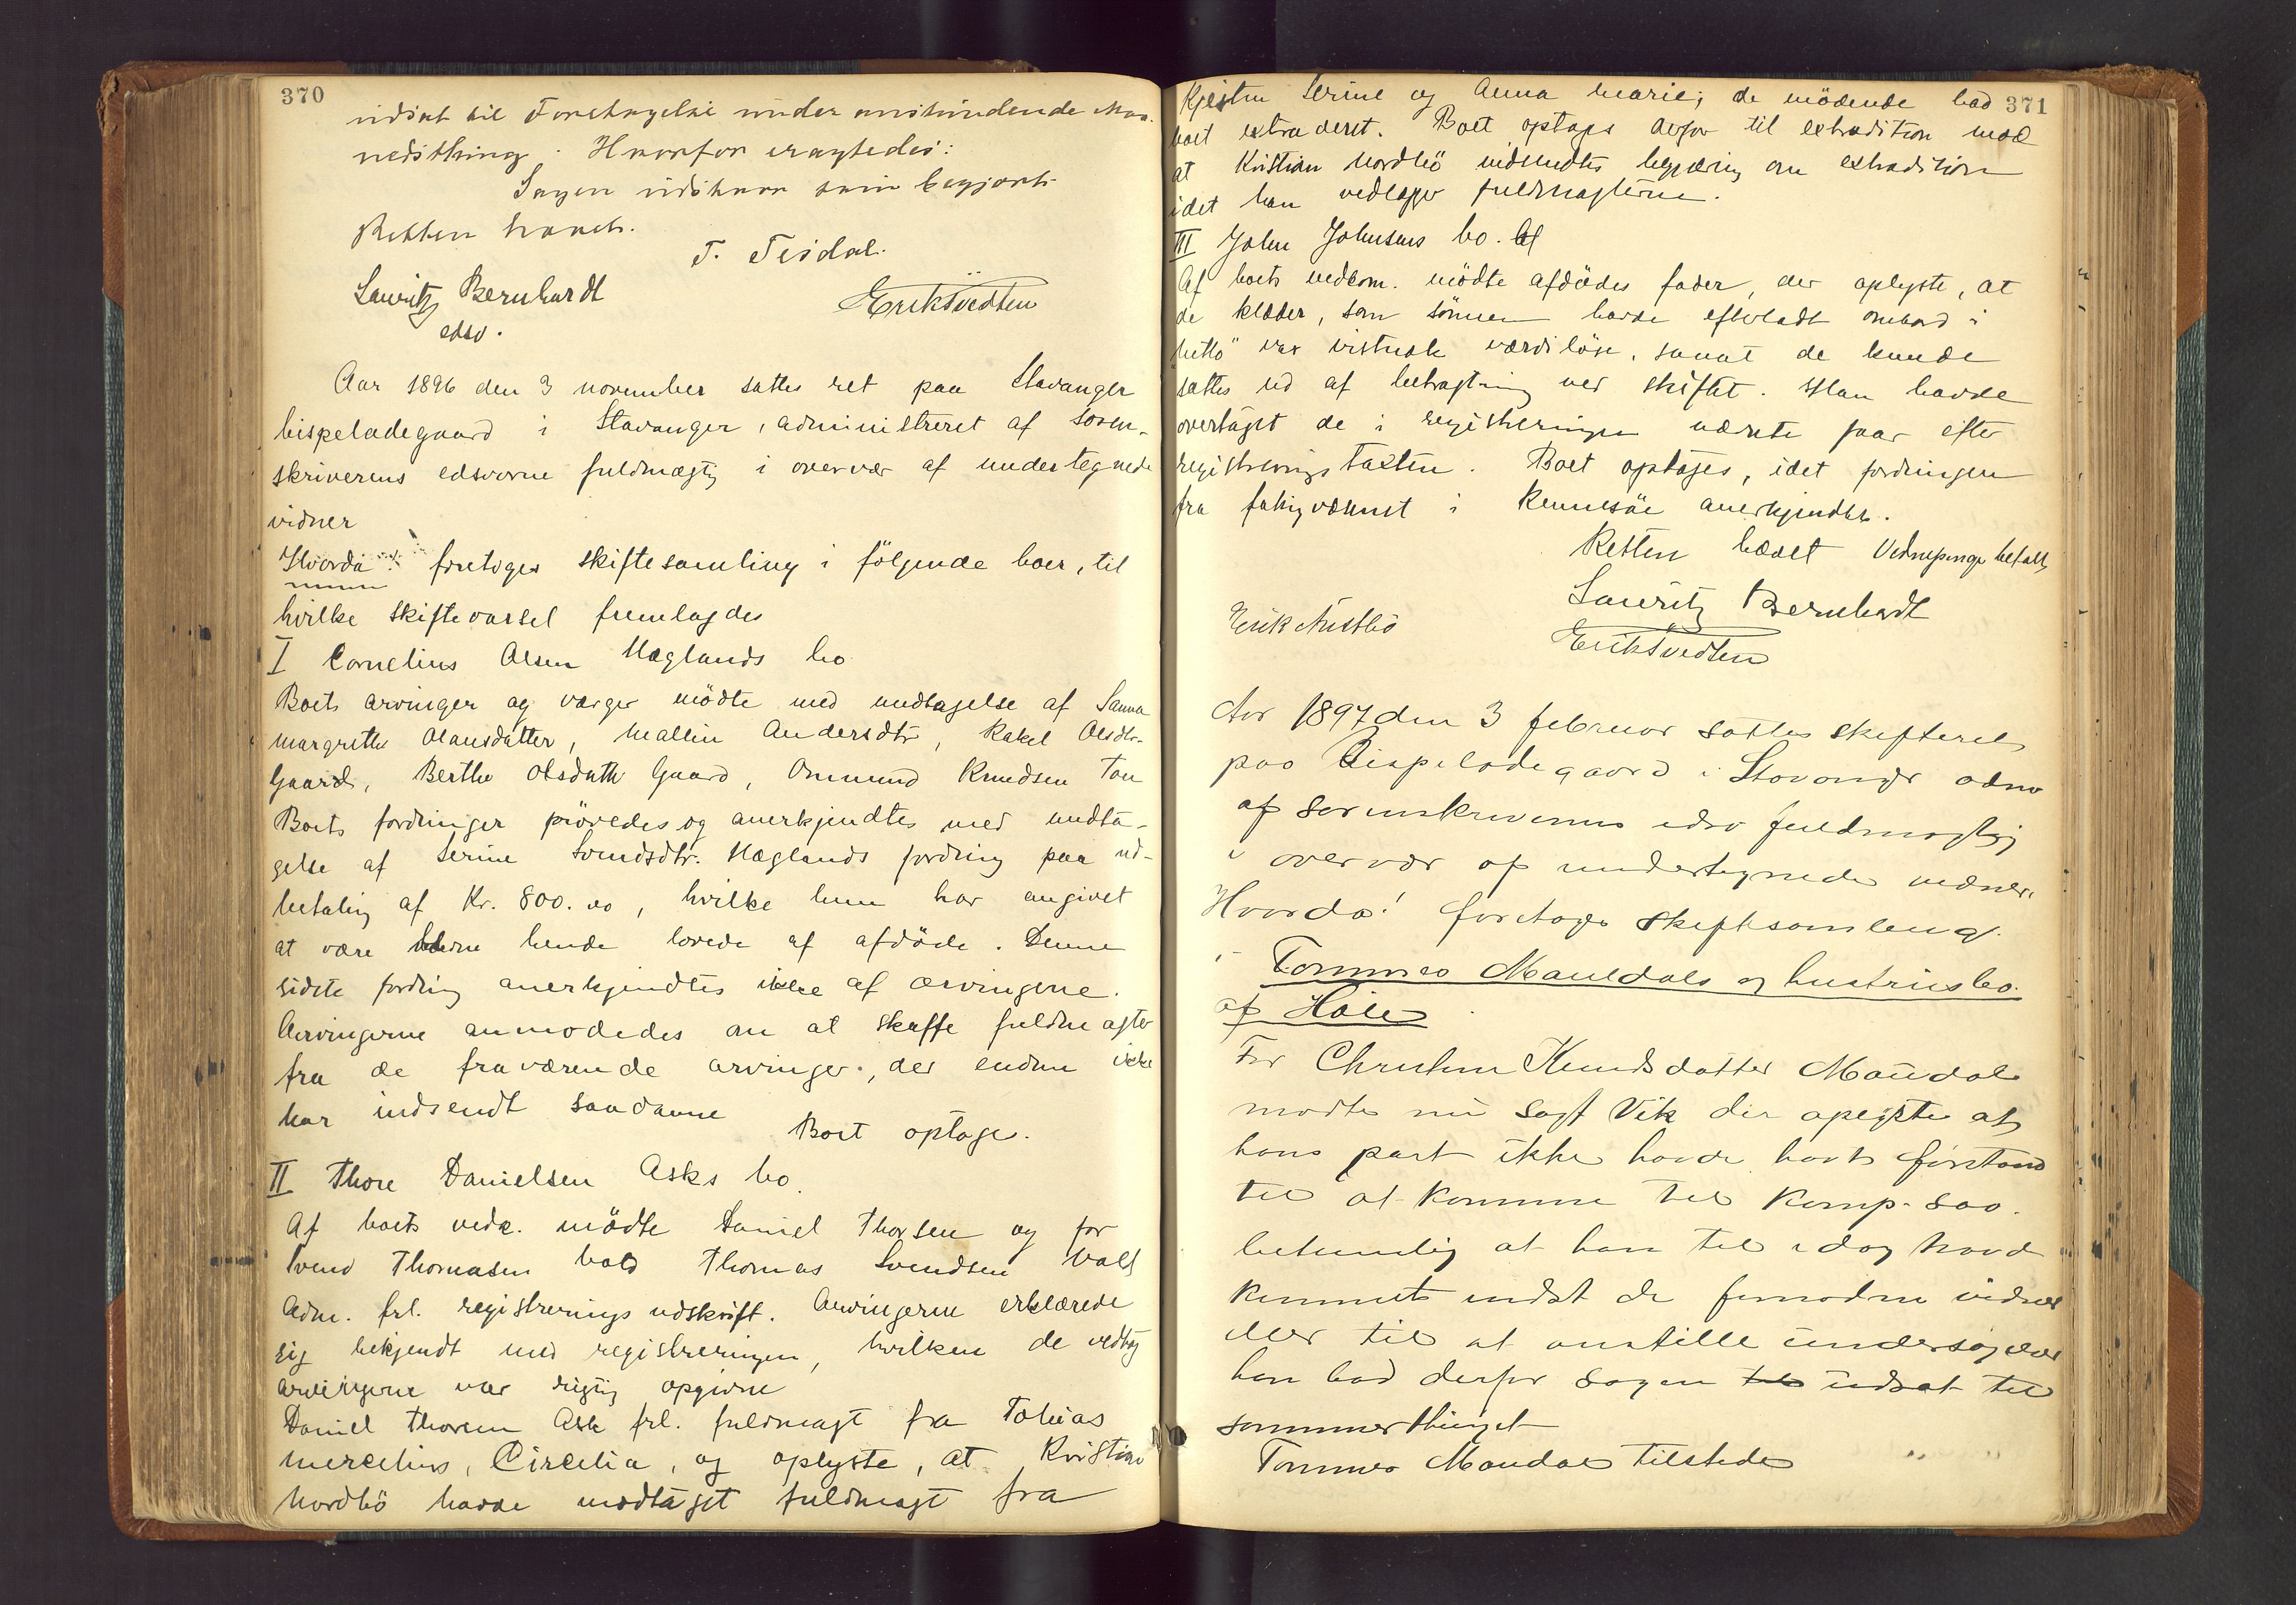 370
udsat til Foretagelse under anstundende Maa-
nedsthing. Hvorfor eragtedes:
Sagen udsættes som begjært
Retten hævet.
T. Tisdal.
Lauritz Bernhardt
edsv.
Erik Tvedten
Aar 1896 den 3 november sattes ret paa Stavanger
bispeladegaard i Stavanger, administreret af soren-
skriverens edsvorne fuldmægtig i overvær af undertegnede
vidner
Hvorda foretoges skiftesamling i følgende boer, til
hvilke skiftevarsel fremlagdes
I Cornelius Olsen Mæglands bo
Boets arvinger og værger mødte med undtagelse af Sanna
Margrethe Olausdatter, Mallin Andersdtr, Rakel Olsdtr.
Gaard, Berthe Olsdatter Gaard, Ommund Knudsen Tou
Boets fordringer prøvedes og anerkjendtes med undta-
gelse af Serine Svendsdtr. Mæglands fordring paa ud-
betaling af Kr. 800.00, hvilke hun har angivet
at være hende lovede af afdøde. Denne
sidste fordring anerkjendtes ikke af arvingerne.
Arvingerne anmodedes om at skaffe fuldmagter
fra de fraværende arvinger, der endnu ikke
har indsendt saadanne Boet optages.
II Thore Danielsen Asks bo.
Af boets vedk. mødte Daniel Thorsen og for
Svend Thomasen Vold Thomas Svendsen Vold
Adm. frl. registreringsudskrift. Arvingerne erklærede
sig bekjendt med registreringen, hvilken de vedtog
arvingerne var rigtig opgivne
Daniel Thorsen Ask frl. fuldmagt fra Tobias
Mercelius, Circelia, og oplyste, at Kristian
Nordbö havde modtaget fuldmagt fra
371
Kjesten Serine og Anna Marie; de mödende bad
boet extraderet. Boet optages derfor til extradition mod
at Kristian Nordbö indsendte begjæring om extradition
idet han vedlægger fuldmagterne.
III John Johnsens bo. Af
Af boets vedkom. mödte afdödes fader, der oplyste, at
de klæder, som sönnen havde efterladt ombord i
" var vistnok værdilöse, saaat de kunde
sættes ud af betragtning ved skiftet. Han havde
overtaget de i registreringen nævnte faar efter
registreringstaxten. Boet optages, idet fordringen
fra fattigvæsenet i Rennesöe anerkjendtes.
Retten hævet Vidnepenge betalt
Lauritz Bernhardt
Erik Austbö
Erik Tvedten
Aar 1897 den 3 februar sattes skifteret
paa Bispeladegaard i Stavanger adm
af sorenskriverens edsv fuldmægtig
i overvær af undertegnede vidner.
Hvorda! foretages skiftesamling
i Tommes Maudals og hustrus bo.
af Høle
For Christine Knudsdatter Maudal
mødte nu sagf Vik der oplyste at
hans part ikke havde havt forstand
til at komme til komp. saa
betimelig at han til idag havde
kunnet indst de fornødne vidner
eller til at anstille undersøgelser
han bad derfor sagen til udsat til
sommerthinget
Tommes Maudal tilstede